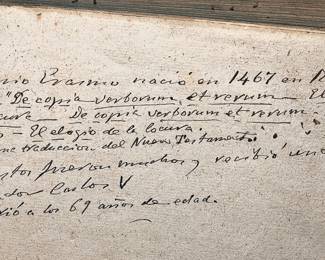 nio Erasmo nació en 1467 en
"De copia verborum et rerum El
cura De copia verborum et rerum.
= El elogio de la locura
ne traduccion del Nuevo Testamento
stos fueron muchos y recibió une
dor Carlos V
rió a los 69 años de edad.